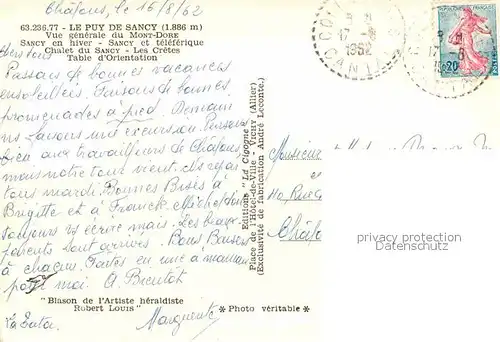 Châlons, le 16/8/62
63.236.77 - LE PUY DE SANCY (1.886 m)
Vue générale du MONT-DORE
SANCY en hiver - SANCY et téléférique
Chalet du SANCY - Les Crêtes
Table d'Orientation
Passons de bonnes vacances
ensoleillées. Faisons de bonnes
promenades à pied. Demain
ns faisons une excursion. Pensons
bien aux travailleurs de Châlons
mais notre tour vient.
tous mardi. Bonnes Bises à
Brigitte et à Franck. Michel
toujours vs écrire mais. Les beaux
parents sont arrivés. Bons Baisers
à chacun. Faites en une à maman
pour moi. A Bientôt
"Blason de l'Artiste héraldiste
Robert LOUIS"
Marguerite
Editions "La Cigogne"
Place de l'Hôtel-de-Ville - VICHY (Allier)
(Exclusivité de fabrication André Leconte.)
* Photo véritable *
Monsieur
et
Châlo
17 -8
1962
CANTAL
0,20
POSTES
privacy protection
Datenschutz